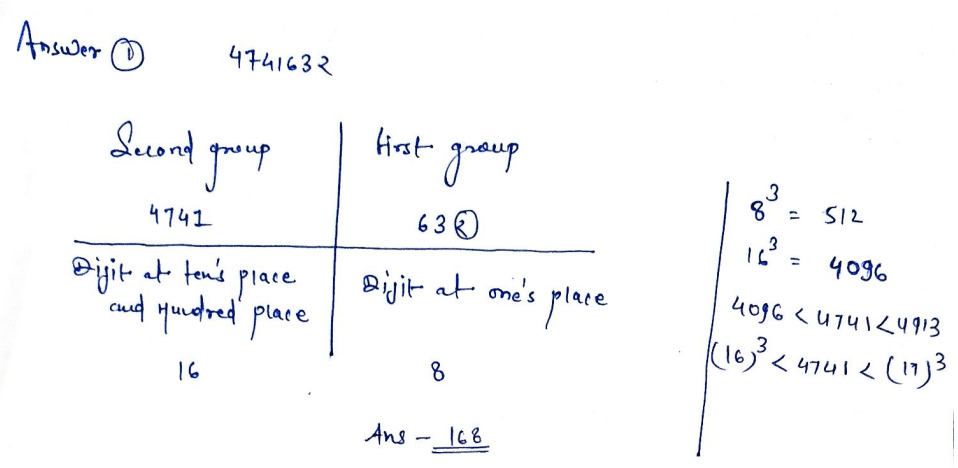 Answer ①
4741632
Second group
First group
4741
632
Digit at ten's place
and Hundred place
Digit at one's place
16
8
Ans - 168
8³ = 512
16³ = 4096
4096 < 4741 < 4913
(16)³ < 4741 < (17)³